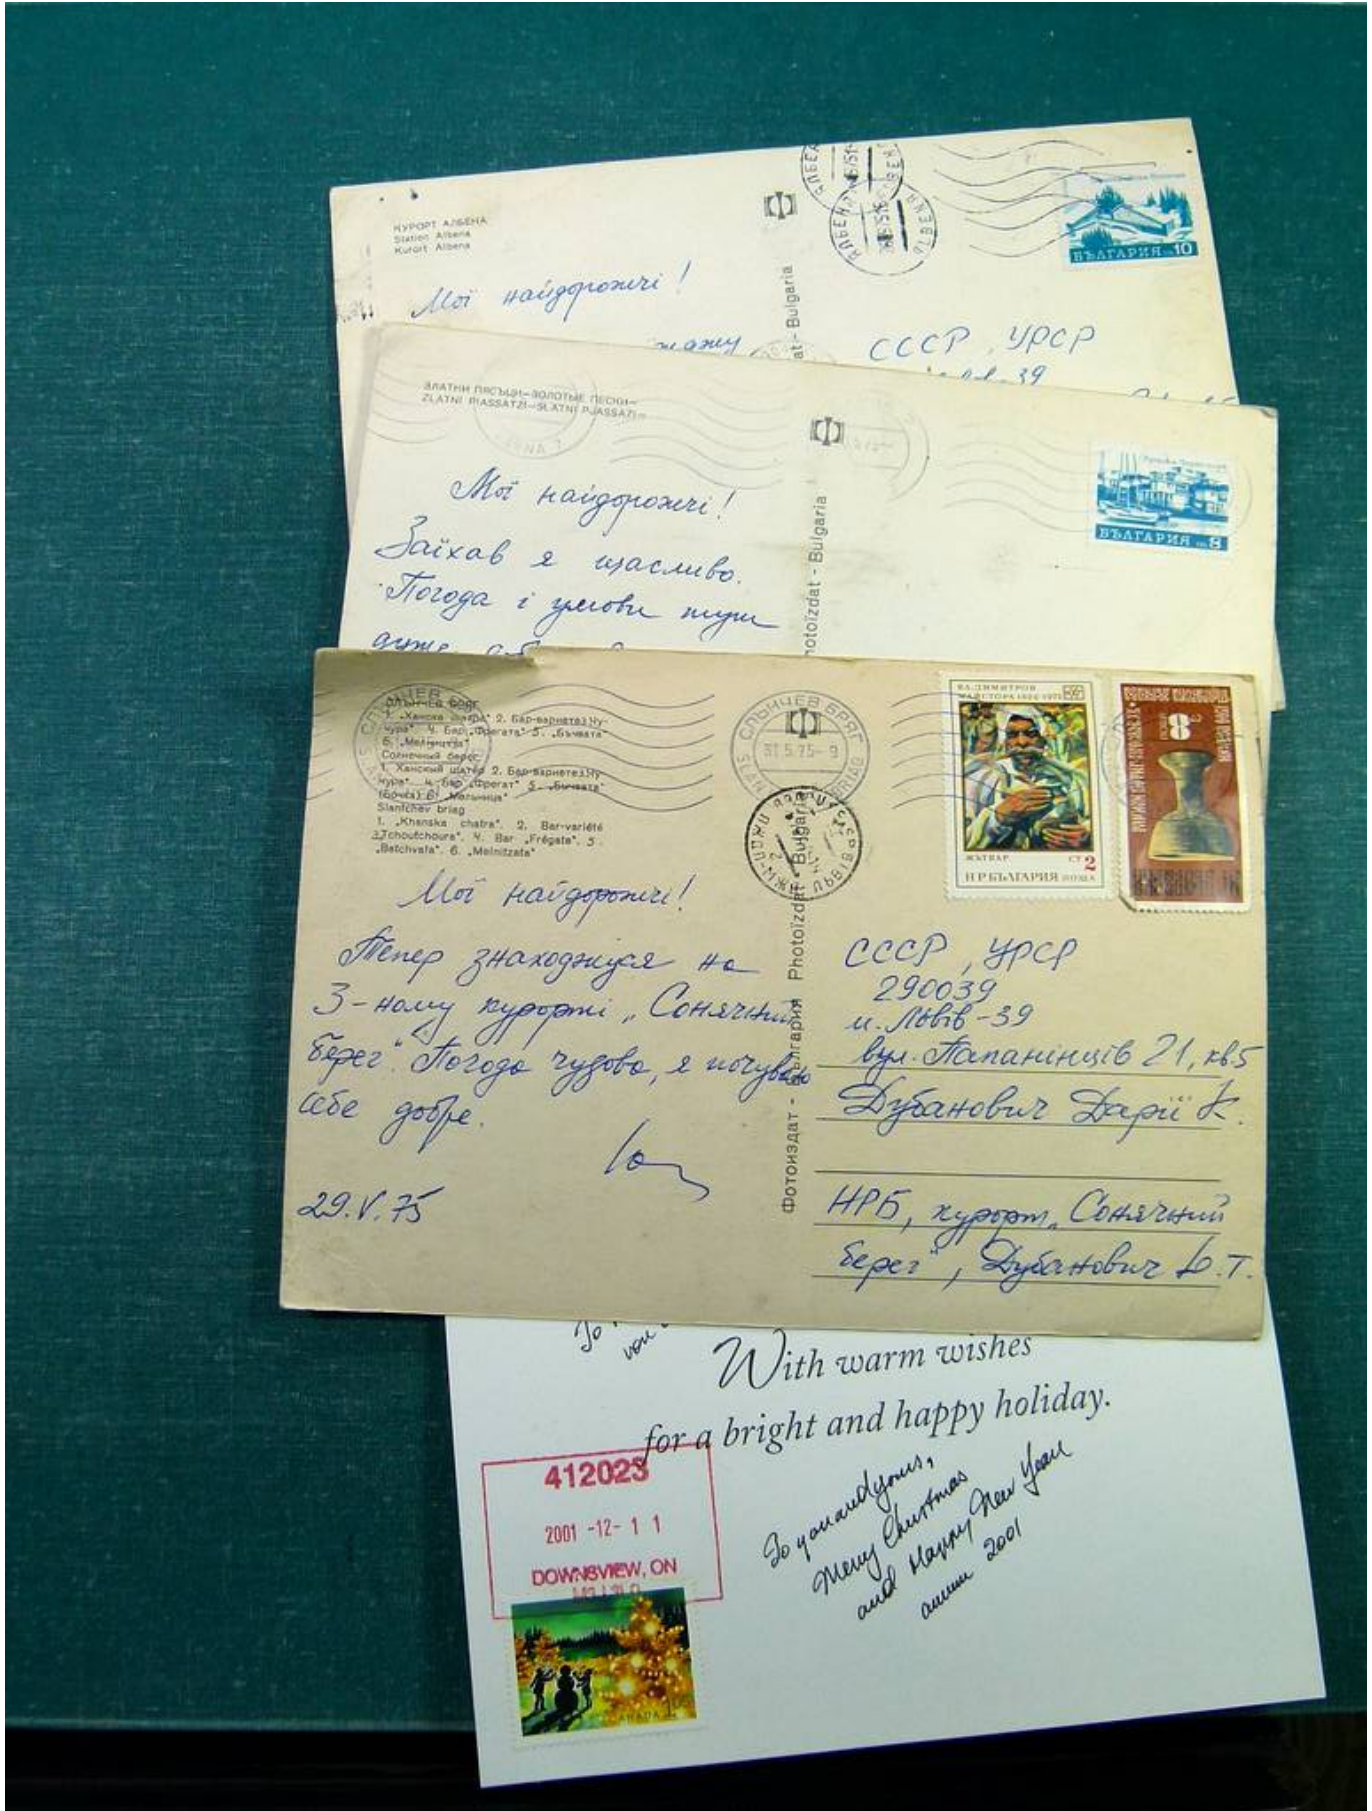 КУРОРТ АЛБЕНА
Station Albena
Kurort Albena
АЛБЕНА
ALBENA
БЪЛГАРИЯ 10
Мої найдорожчі!
кажу
at - Bulgaria
СССР, УРСР
39
ЗЛАТНИ ПЯСЪЦИ—ЗОЛОТЫЕ ПЕСКИ—
ZLATNI PIASSATZI—SLATNI PJASSAZI—
VARNA
БЪЛГАРИЯ 8
Мої найдорожчі!
Заїхав я щасливо.
Погода і умови тут
дуже
hotoizdat - Bulgaria
СЛЪНЧЕВ БРЯГ
SLANTCHEV BRIAG
31.5.75- 9
Слънчев бряг
1. „Ханска шатра" 2. Бар-вариете „Чу-
чура" 4. Бар „Фрегата" 5. „Бъчвата"
6. „Мелницата"
Солнечный берег
1. Ханский шатер 2. Бар-варьете „Чу-
чура" 4. Бар „Фрегат" 5. „Бычвата"
(бочка) 6. „Мельница"
Slantchev briag
1. „Khanska chatra". 2. Bar-variété
3 „Tchoutchoura". 4. Bar „Frégate". 5.
„Batchvata". 6. „Melnitzata"
ВЛ. ДИМИТРОВ
МАЙСТОРА 1882-1972
ЖЪТВАР СТ 2
НР БЪЛГАРИЯ ПОЩА
8
Мої найдорожчі!
Тепер знаходжуся на
3-ному курорті „Сонячний
берег". Погода чудова, я почуваю
себе добре.
29.V.75
Фотоиздат - България Photoizdat - Bulgaria
СССР, УРСР
290039
м. Львів-39
вул. Папанінців 21, кв.5
Дубанович Дарії К.
НРБ, курорт „Сонячний
берег", Дубанович Ю.Т.
To
With warm wishes
for a bright and happy holiday.
412023
2001 -12- 1 1
DOWNSVIEW, ON
CANADA
To you and yours,
Merry Christmas
and Happy New Year
2001